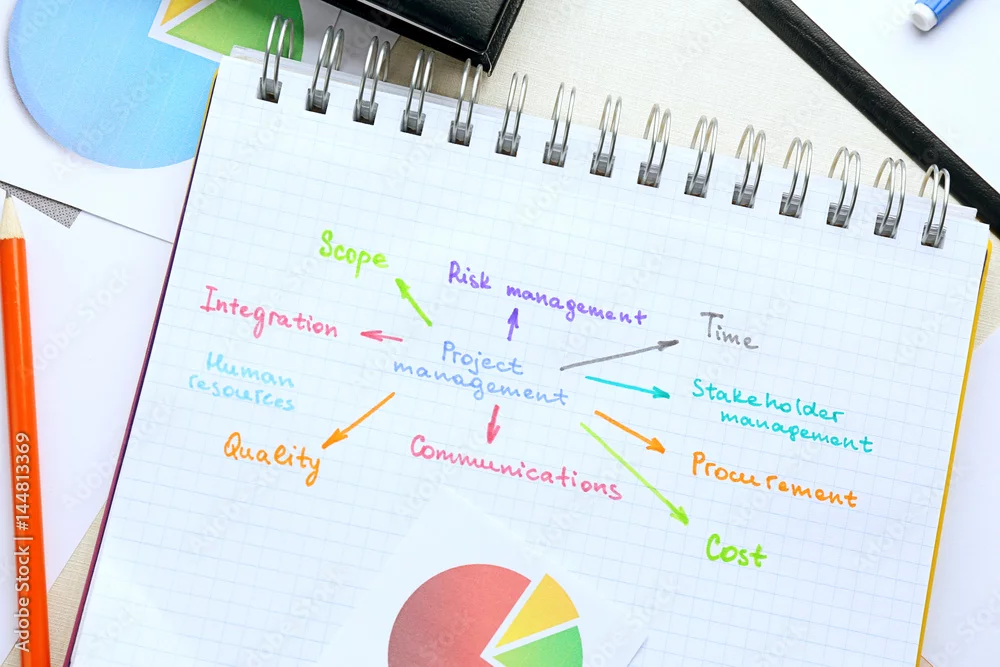 Scope
Risk management
Integration
Time
Project
management
Human
resources
Stakeholder
management
Quality
Communications
Procurement
Cost
Adobe Stock | #144813369